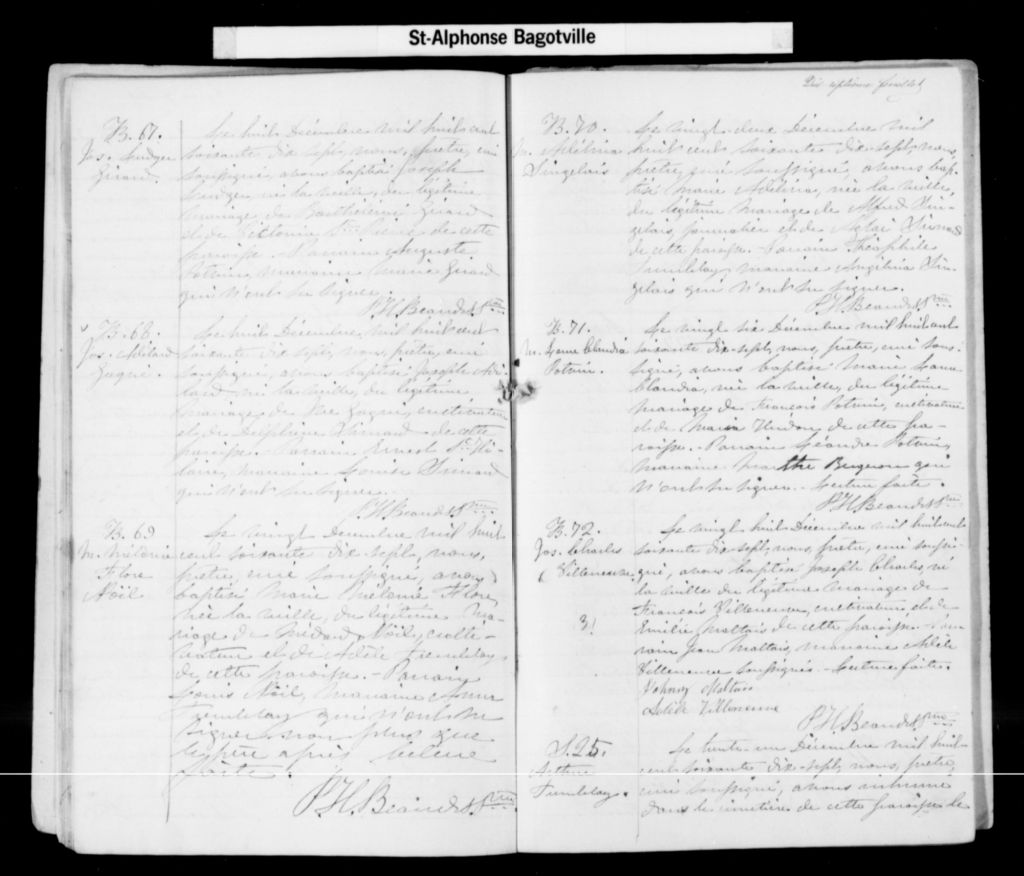 St-Alphonse Bagotville
Dix septième feuillet
B. 67.
Jos. Ludger
Girard.
Le huit Décembre mil huit cent
soixante dix sept, nous, prêtre, curé
soussigné, avons baptisé Joseph
Ludger né la veille, du légitime
mariage de Barthélémi Girard
et de de cette
paroisse. Parrain Auguste
Potvin, marraine Marie Girard
qui n'ont su signer.
P. H. Beaudet Ptre
B. 68.
Jos. Adélard
Gagné.
Le huit Décembre mil huit cent
soixante dix sept, nous, prêtre, curé
soussigné, avons baptisé Joseph Adé-
lard né la veille, du légitime
mariage de Gagné, cultivateur
et de Delphine Simard de cette
paroisse. Parrain Ernest St Hi-
laire, marraine Louise Simard
qui n'ont su signer.
P. H. Beaudet Ptre
B. 69
M. Mélanie
Flore
Noël
Le vingt Décembre mil huit
cent soixante dix-sept, nous,
prêtre, curé soussigné, avons
baptisé Marie Mélanie Flore,
née la veille, du légitime ma-
riage de Médard Noël, culti-
vateur et de Adèle Tremblay
de cette paroisse. - Parrain
Louis Noël, marraine Anna
Tremblay qui n'ont su
signer non plus que
le père après lecture
faite.
P. H. Beaudet Ptre
B. 70.
M. Adélina
Singelais
Le vingt deux Décembre mil
huit cent soixante dix-sept, nous,
prêtre, curé soussigné, avons bap-
tisé Marie Adélina, née la veille,
du légitime mariage de Alfred Sin-
gelais, journalier et de Aglaé Simard
de cette paroisse. - Parrain Théophile
Tremblay, marraine Angélina Sin-
gelais qui n'ont su signer.
P. H. Beaudet Ptre
B. 71.
M. Laura Claudia
Potvin.
Le vingt six Décembre mil huit cent
soixante dix-sept, nous, prêtre, curé sous-
signé, avons baptisé Marie Laura
Claudia, née la veille, du légitime
mariage de François Potvin, cultivateur
et de Marie Verdon de cette pa-
roisse. - Parrain Léandre Potvin,
marraine Marthe Bergeron qui
n'ont su signer. Lecture faite.
P. H. Beaudet Ptre
B. 72.
Jos. Charles
Villeneuve
3!
Le vingt huit Décembre mil huit cent
soixante dix-sept, nous, prêtre, curé soussi-
gné, avons baptisé Joseph Charles né
la veille du légitime mariage de
François Villeneuve, cultivateur et de
Emilie Maltais de cette paroisse. Par-
rain Jean Maltais, marraine Adèle
Villeneuve soussignés. - Lecture faite.
Johnny Maltais
Adèle Villeneuve
P. H. Beaudet Ptre
S. 25.
Arthur
Tremblay.
Le trente-un Décembre mil huit
cent soixante dix-sept, nous, prêtre,
curé soussigné, avons inhumé
dans le cimetière de cette paroisse le